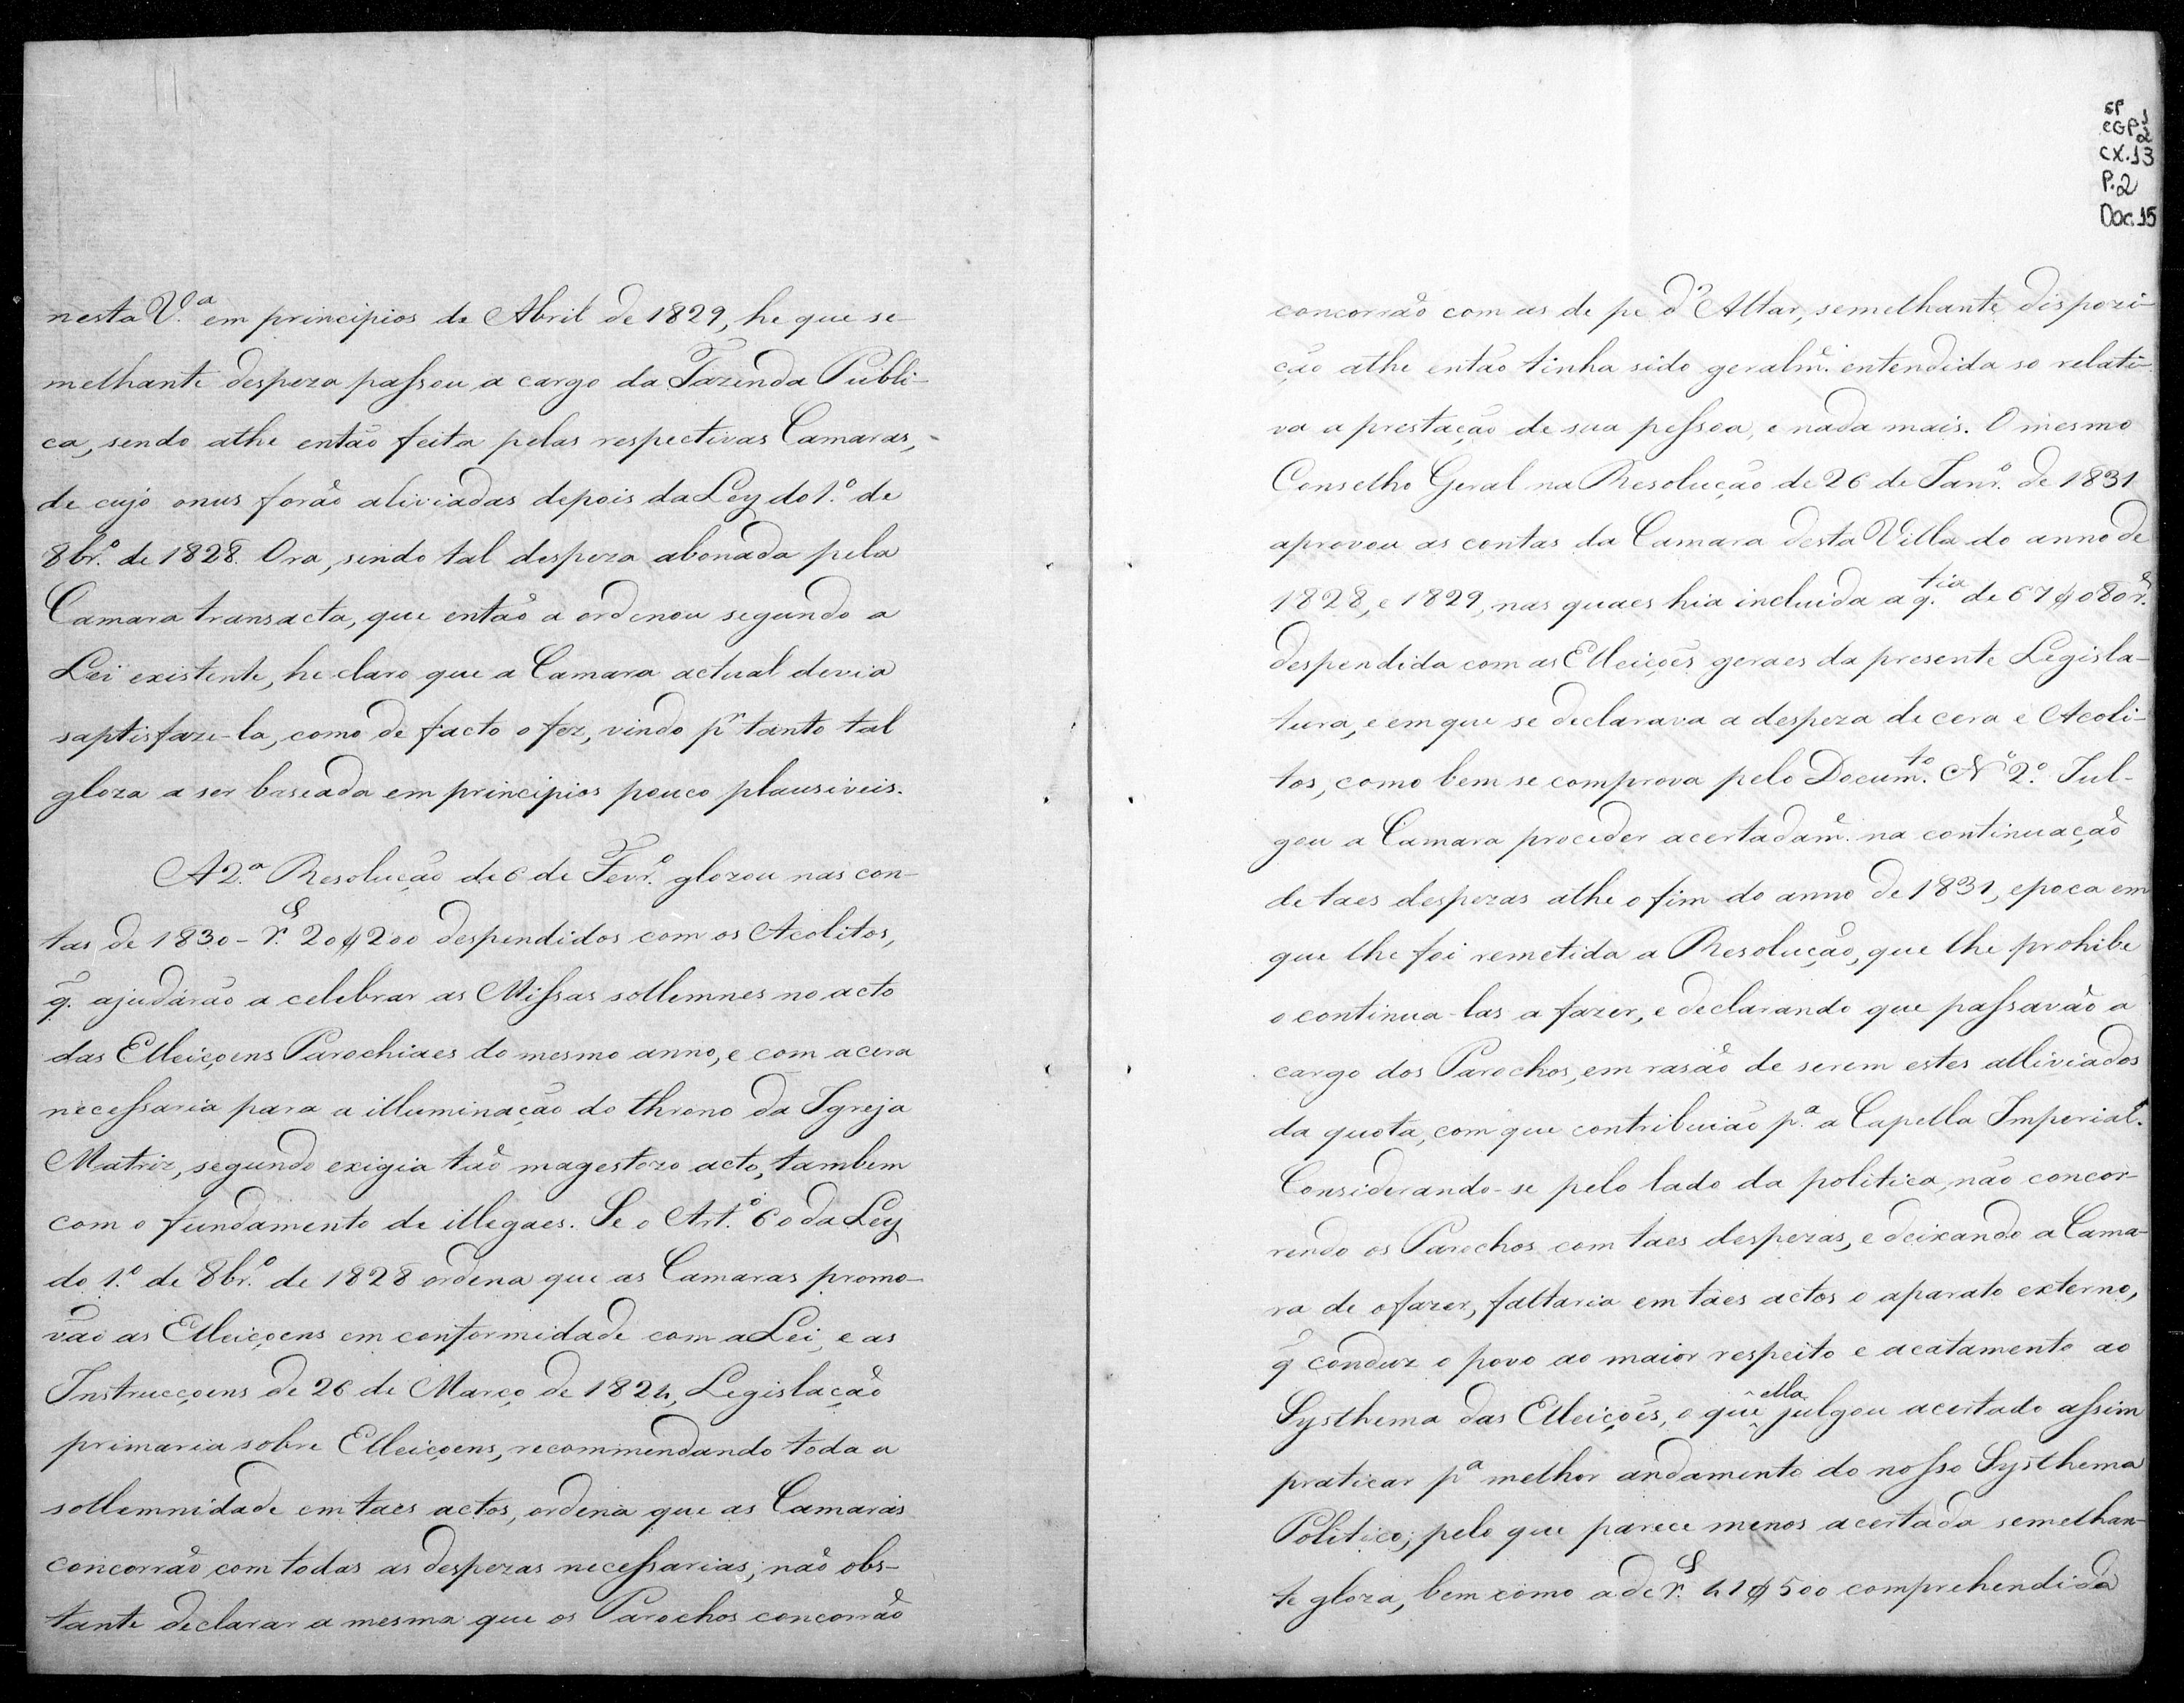 nesta V.ª em principios de Abril de 1829, he que se-
melhante despeza passou a cargo da Fazenda Publi-
ca, sendo athe então feita pelas respectivas Camaras,
de cujo onus forão aliviadas depois da Ley do 1.º de
8br.º de 1828. Ora, sendo tal despeza abonada pela
Camara transacta, que então a ordenou segundo a
Lei existente, he claro que a Camara actual devia
saptisfaze-la, como de facto o fez, vindo pr tanto tal
gloza a ser baseada em principios pouco plausiveis.
A 2.ª Resolução de 6 de Fevr.º glozou nas con-
tas de 1830 - r.s 20$200 despendidos com os Acolitos,
q̃. ajudárão a celebrar as Missas sollemnes no acto
das Elleiçoens Parochiaes do mesmo anno, e com a cera
necessaria para a illuminação do throno da Igreja
Matriz, segundo exigia tão magestozo acto, tambem
com o fundamento de illegaes. Se o Art.º 60 da Ley
do 1.º de 8br.º de 1828 ordena que as Camaras promo-
vão as Elleiçoens em conformidade com a Lei, e as
Instrucçoens de 26 de Março de 1824, Legislação
primaria sobre Elleiçoens, recommendando toda a
sollemnidade em taes actos, ordena que as Camaras
concorrão com todas as despezas necessarias; não obs-
tante declarar a mesma que os Parochos concorrão
SP
CGP1
2
CX.13
P.2
Doc.15
concorrão com as de pe d'Altar, semelhante dispozi-
ção athe então tinha sido geralm.e entendida so relati-
va a prestação de sua pessoa, e nada mais. O mesmo
Conselho Geral na Resolução de 26 de Janr.º de 1831
aprovou as contas da Camara desta Villa do anno de
1828, e 1829, nas quaes hia incluida a q.tia de 67$080 r.s
despendida com as Elleições geraes da presente Legisla-
tura, e em que se declarava a despeza de cera e Acoli-
tos, como bem se comprova pelo Docum.to Nº 2.º Jul-
gou a Camara proceder acertadam.e na continuação
de taes despezas athe o fim do anno de 1831, epoca em
que lhe foi remetida a Resolução, que lhe prohibe
o continua-las a fazer, e declarando que passavão a
cargo dos Parochos, em rasão de serem estes alliviados
da quota, com que contribuião p.ª a Capella Imperial.
Considerando-se pelo lado da politica, não concor-
rendo os Parochos com taes despezas, e deixando a Cama-
ra de o fazer, faltaria em taes actos o aparato externo,
q̃ conduz o povo ao maior respeito e acatamento ao
Systhema das Elleições, o que ella julgou acertado assim
praticar pª melhor andamento do nosso Systhema
Politico; pelo que parece menos acertada semelhan-
te gloza, bem como a de r.s 41$500 comprehendida